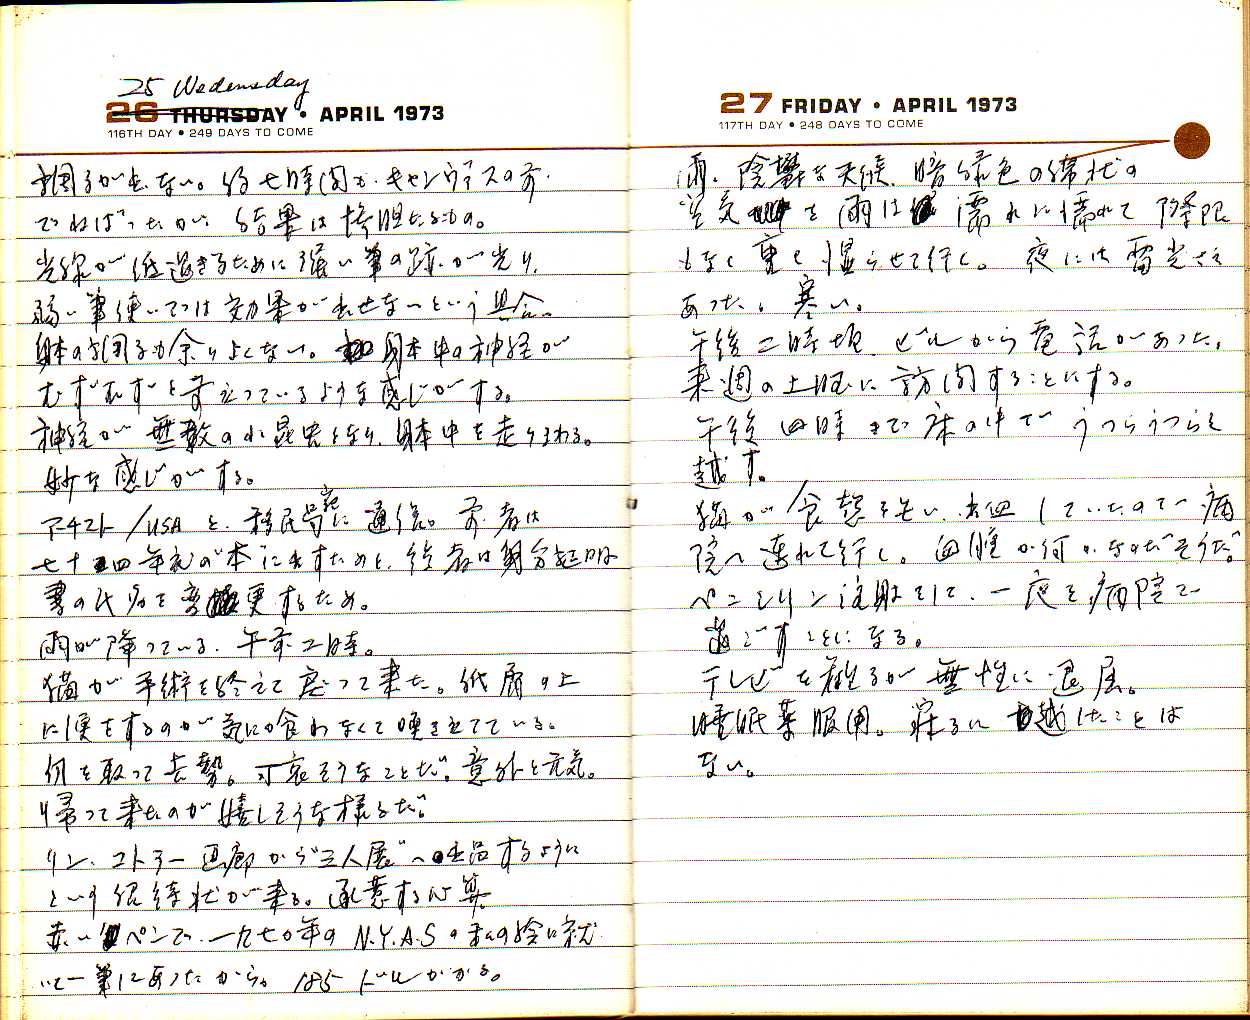 25 Wednesday
26 THURSDAY • APRIL 1973
116TH DAY • 249 DAYS TO COME
調子が出ない。約七時間も、キャンヴァスの前
でねばったが、結果は惨胆たるもの。
光線が低過ぎるために強い筆の跡が光り、
弱い筆使いでは効果が出せないという具合。
身体の調子も余りよくない。身体中の神経が
むずむずと
ているような感じがする。
神経が無数の小昆虫となり、身体中を走りまわる。
妙な感じがする。
アーチスト/USAと、移民局に通信。前者は
七十四年度の本に出すためと、後者は身分証明
書の を変更するため。
雨が降っている。午前二時。
猫が手術を終えて戻って来た。紙屑の上
に便をするのが気に食わなくて喚き立てている。
何を取って去勢。可哀そうなことだ。意外と元気。
帰って来たのが嬉しそうな様子だ。
リン・コトラー画廊から"三人展"へ出品するように
という招待状が来る。承諾する心算。
赤いペンで、一九七〇年のN.Y.A.Sの私の絵に就
いて一筆にあったから。185ドルかかる。
27 FRIDAY • APRIL 1973
117TH DAY • 248 DAYS TO COME
雨。陰鬱な天候、暗緑色の帯状の
空気を雨は濡れに濡れて際限
もなく重く湿らせて行く。夜には雷光さえ
あった。寒い。
午後二時頃、ビルから電話があった。
来週の土曜に訪問することにする。
午後四時まで床の中でうつらうつらと
越す。
猫が食慾を失い、出血していたので病
院へ連れて行く。 か何かなのだそうだ。
ペニシリン注射をして、一夜を病院で
過ごすことになる。
テレビを観るが無性に退屈。
睡眠薬服用。寐るに越したことは
ない。